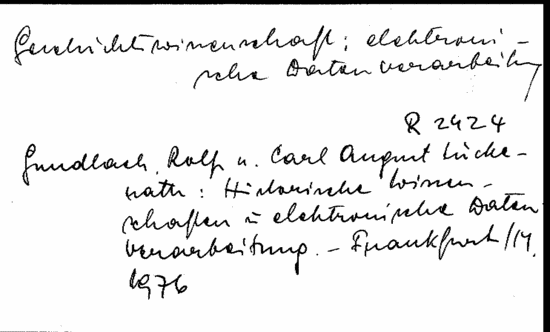 Geschichtswissenschaft; elektroni-
sche Datenverarbeitung
R 2424
Gundlach, Rolf u. Carl August Lücke-
rath: Historische Wissen-
schaften u. elektronische Daten-
verarbeitung. - Frankfurt/M.
1976